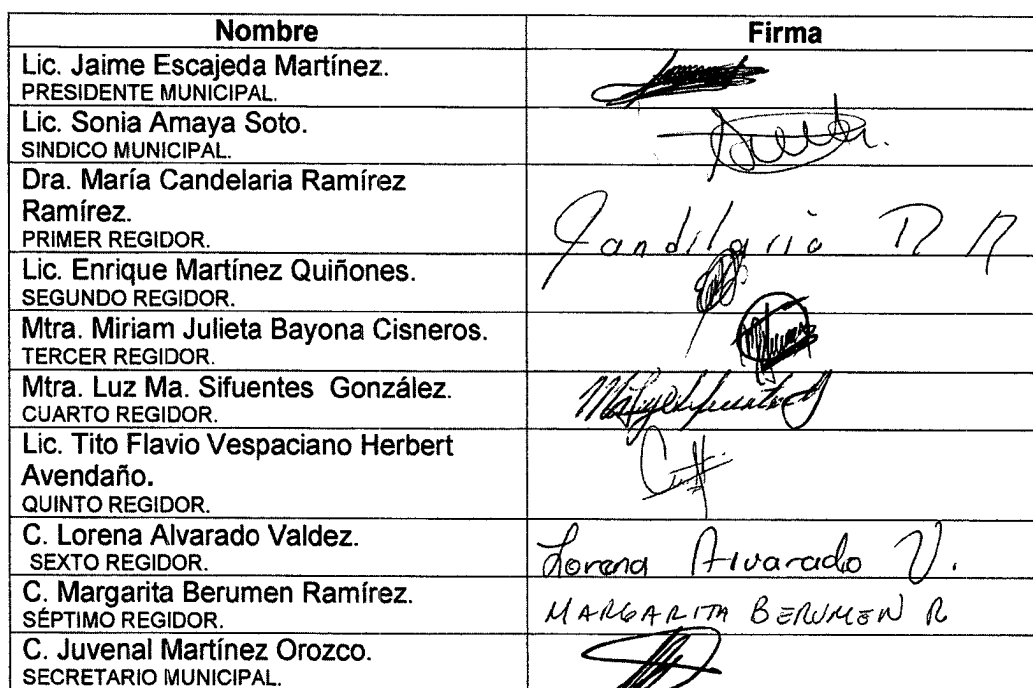 Nombre Firma
Lic. Jaime Escajeda Martínez.
PRESIDENTE MUNICIPAL.
Lic. Sonia Amaya Soto.
SINDICO MUNICIPAL.
Dra. María Candelaria Ramírez
Ramírez.
PRIMER REGIDOR.
Candilaria R R
Lic. Enrique Martínez Quiñones.
SEGUNDO REGIDOR.
Mtra. Miriam Julieta Bayona Cisneros.
TERCER REGIDOR.
Mtra. Luz Ma. Sifuentes González.
CUARTO REGIDOR.
Lic. Tito Flavio Vespaciano Herbert
Avendaño.
QUINTO REGIDOR.
C. Lorena Alvarado Valdez.
SEXTO REGIDOR.
Lorena Alvarado V.
C. Margarita Berumen Ramírez.
SÉPTIMO REGIDOR.
MARGARITA BERUMEN R
C. Juvenal Martínez Orozco.
SECRETARIO MUNICIPAL.